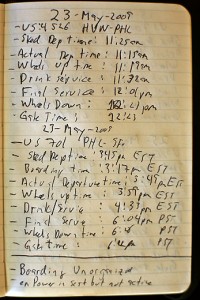 23-May-2009
- US 4526 HVN-PHL
- Sked Dep time: 11:25am
- Actual Dep time: 11:15am
- Wheels up time: 11:19am
- Drink service: 11:32am
- Final Service: 12:01pm
- Wheels Down: 12:21pm
- Gate Time: 12:23
23-May-2009
- US 701 PHL-SFO
- Sked Dep time: 3:45pm EST
- Boarding time: 3:17pm EST
- Actual Departure time: 3:45pm EST
- Wheels up time: 3:59pm EST
- Drink/Service: 4:37pm EST
- Final Serve: 6:04pm PST
- Wheels Down time: 6:38 PST
- Gate time: 6:42pm PST
- Boarding Unorganized
- en Power in seat but not active